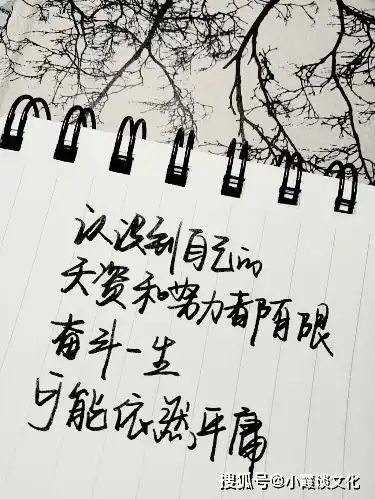 认识到自己的
天资和努力都有限
奋斗一生
可能依然平庸
搜狐号@小霞谈文化